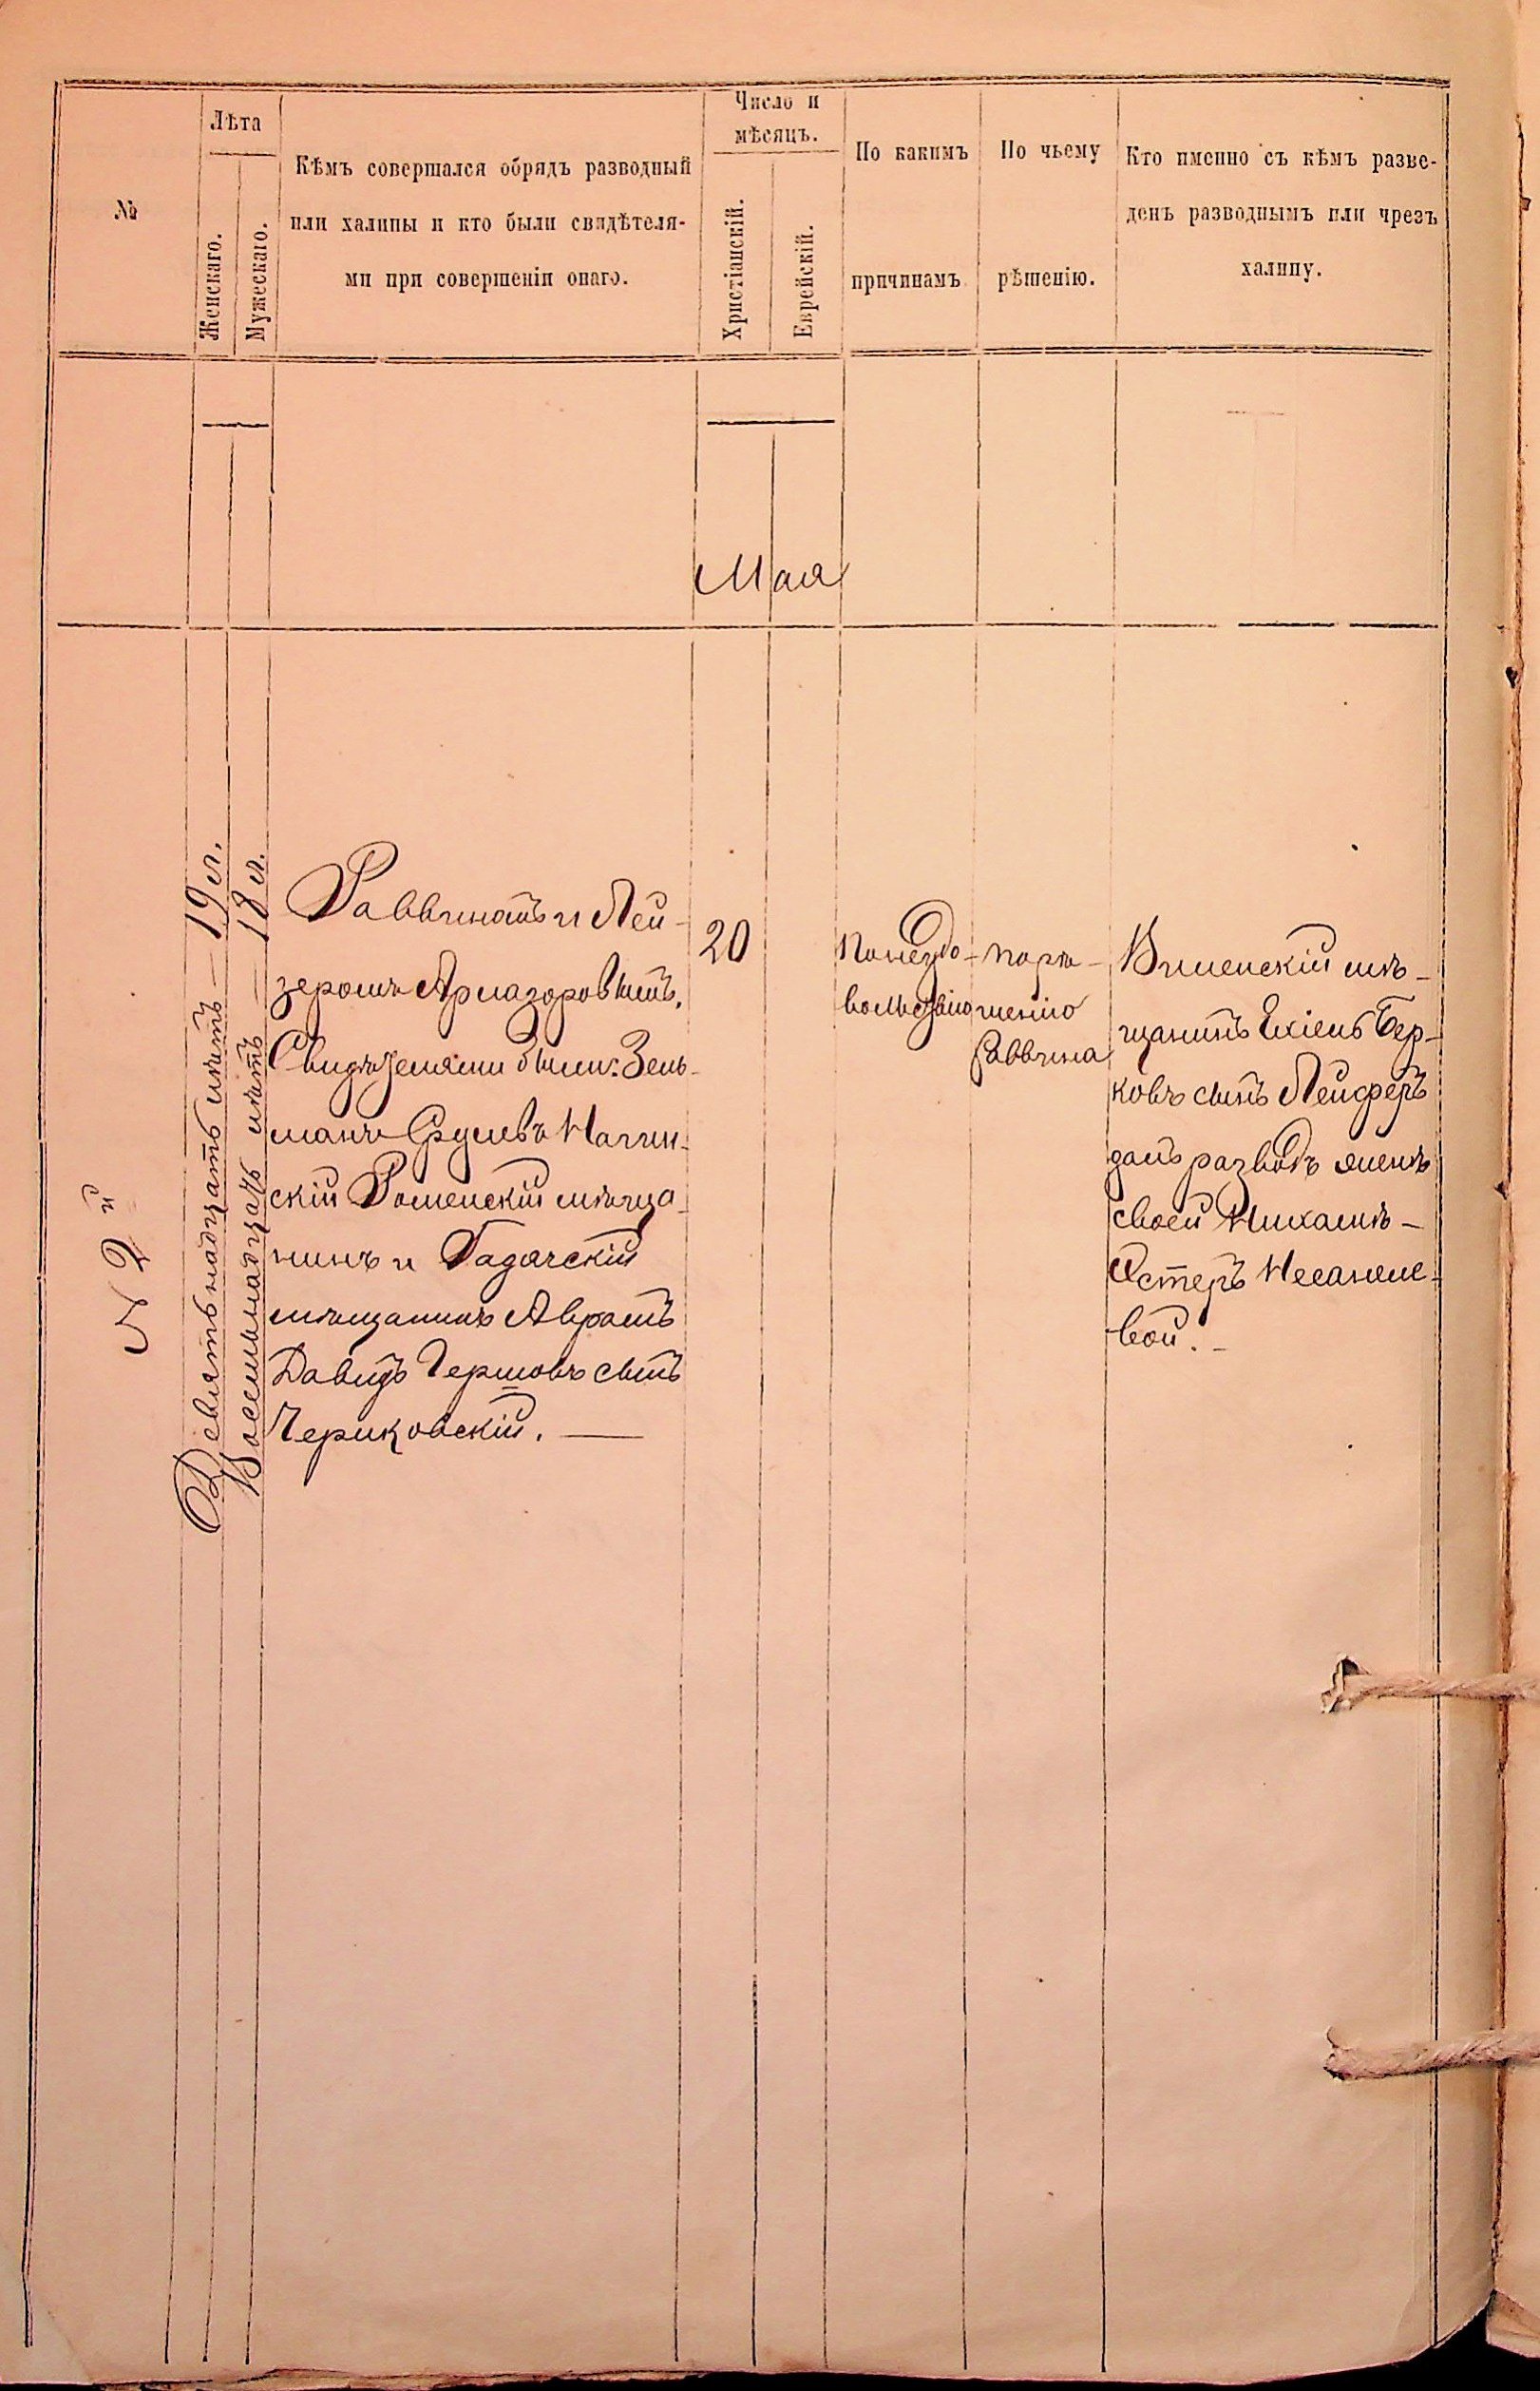 №
Лѣта
Женскаго.
Мужескаго.
Кѣмъ совершался обрядъ разводный
или халицы и кто были свидѣтеля-
ми при совершеніи онаго.
Число и
мѣсяцъ.
Христіанскій.
Еврейскій.
По какимъ
причинамъ
По чьему
рѣшенію.
Кто именно съ кѣмъ разве-
денъ разводнымъ или чрезъ
халицу.
Мая
№ 2й
Девятьнадцать лѣтъ — 19 л.
Восемьнадцать лѣтъ — 18 л.
Раввинатъ и Лей-
зеромъ
Свидѣтелями были: Зель-
манъ
скій Роменскій мѣща-
нинъ и Гадячскій
мѣщанинъ Аврамъ
Давидъ Гершовъ сынъ
Чериковскій. —
20
Понеудо-
вольствію
порѣ-
шенію
Раввина
Виленскій мѣ-
щанинъ Ехіель Бер-
ковъ сынъ Лейферъ
далъ разводъ женѣ
своей Михамѣ-
Эстеръ
вой. -